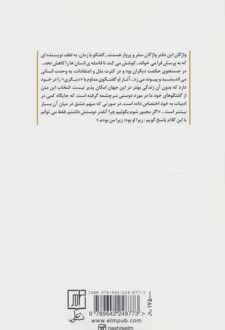 واژگان این دفتر واژگان سفر و پرواز هستند... گفتگو با زمان، به لطف نویسنده ای
که به پرسش فرا می خواند... کوشش می کنند تا فاصله ی انسان ها را کاهش دهد...
در جستجوی حکمت دیگران بود و در کثرت ملل و اعتقادات، به وحدت انسانی
می اندیشید و پیوند می زد... آثار او گفتگوی مداوم با «دیگری» را در خود
دارد که بدون آن زندگی بهتر در این جهان امکان پذیر نیست. انتخاب این متن
از گفتگوهای خود ما در مورد دوستی سرچشمه گرفته است، که جایگاه کمی در
ادبیات به خود اختصاص داده است، در صورتی که سهم عشق در میان آن بسیار
بیشتر است... «اگر مجبور شوم بگویم چرا آنقدر دوستش داشتم، فقط می توانم
با این کلام پاسخ گویم: زیرا او بود؛ زیرا من بودم.»
ISBN: 978-964-224-877-3
9 789642 248773 >
www.elmpub.com
nashreelm